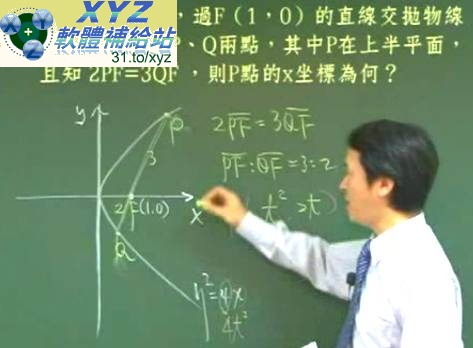 XYZ
軟體補給站
31.to/xyz
，過F（1，0）的直線交拋物線
、Q兩點，其中P在上半平面，
且知 2PF=3QF ，則P點的x坐標為何？
y
P
3
2
F(1.0)
x
Q
2PF=3QF
PF:QF=3:2
( t² 2t )
y²=4x
4t²